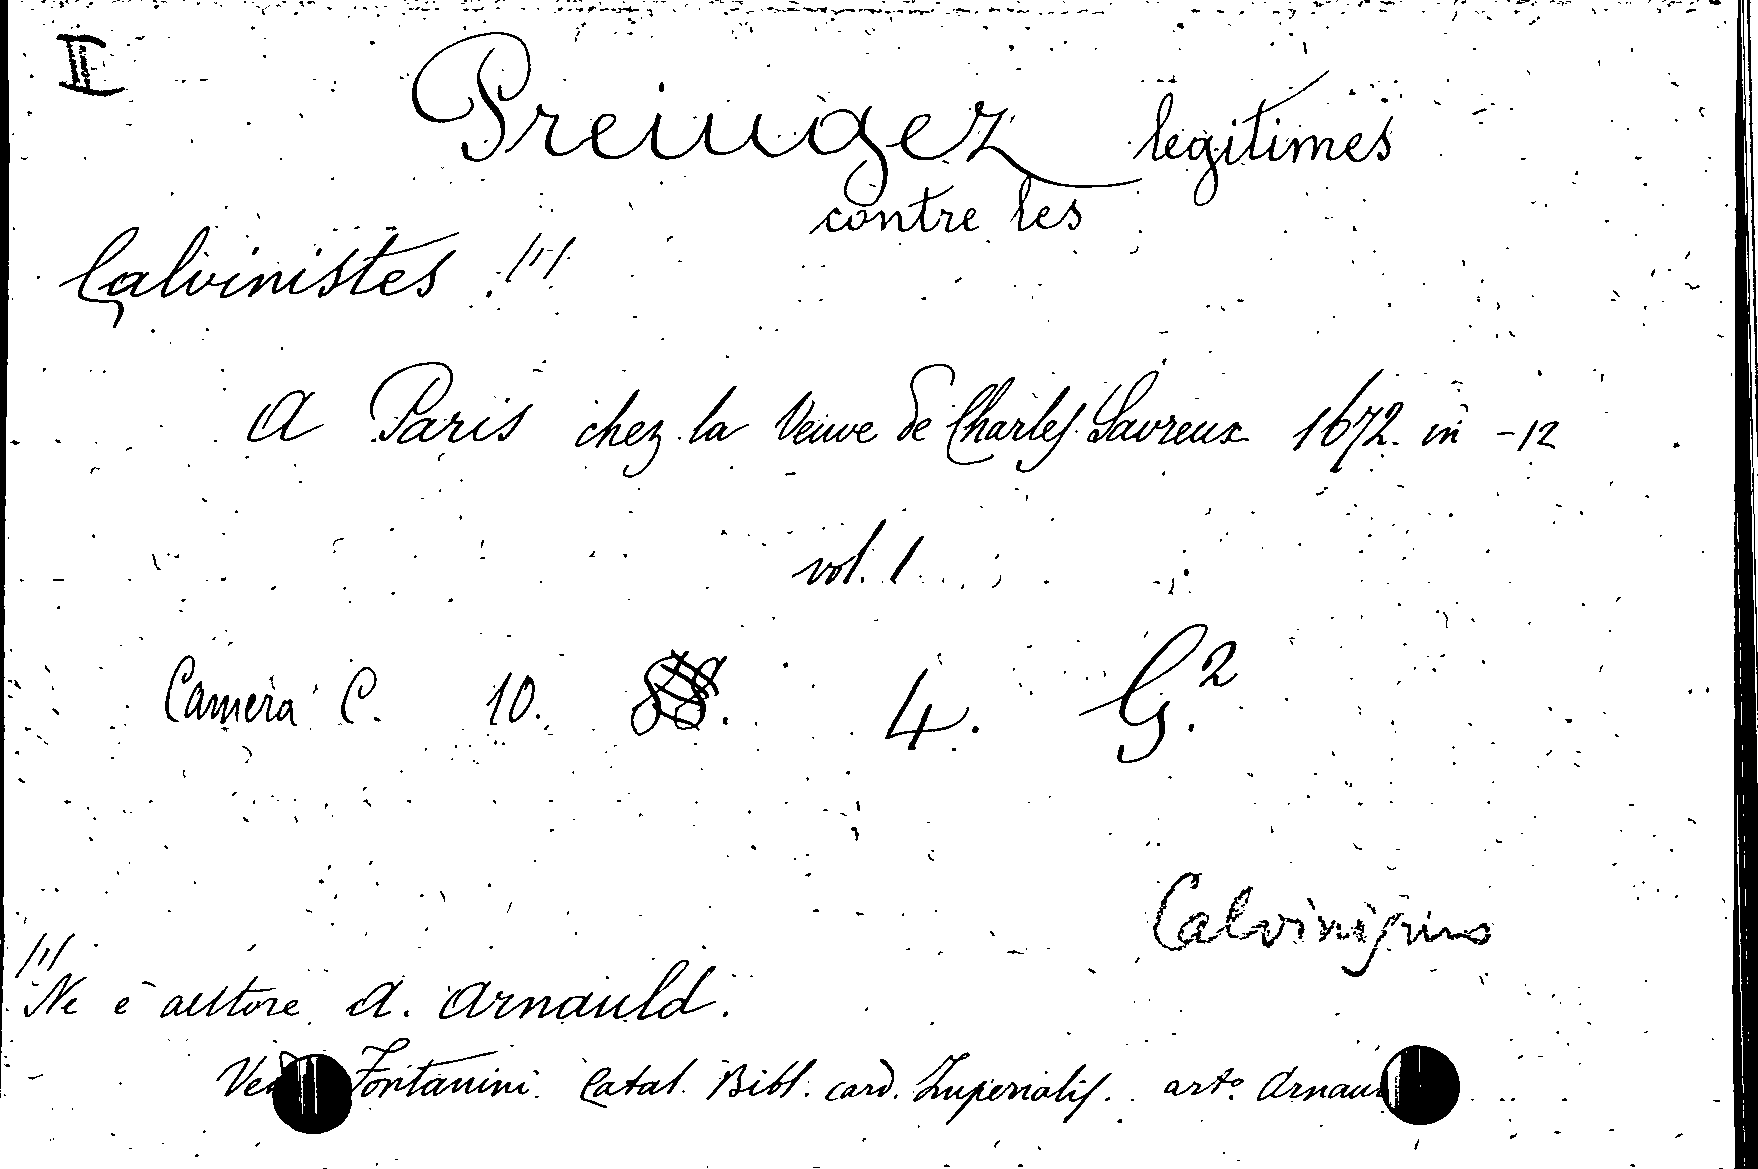 II
Preiugez legitimes
contre les
Calvinistes (1)
A Paris chez la Veuve de Charles Savreux 1672. in -12
vol. 1
Camera C. 10. 4. G.2
Calvinismus
(1) Ne è autore A. Arnauld.
Fontanini. Catal. Bibl. card. Imperialis. arto.